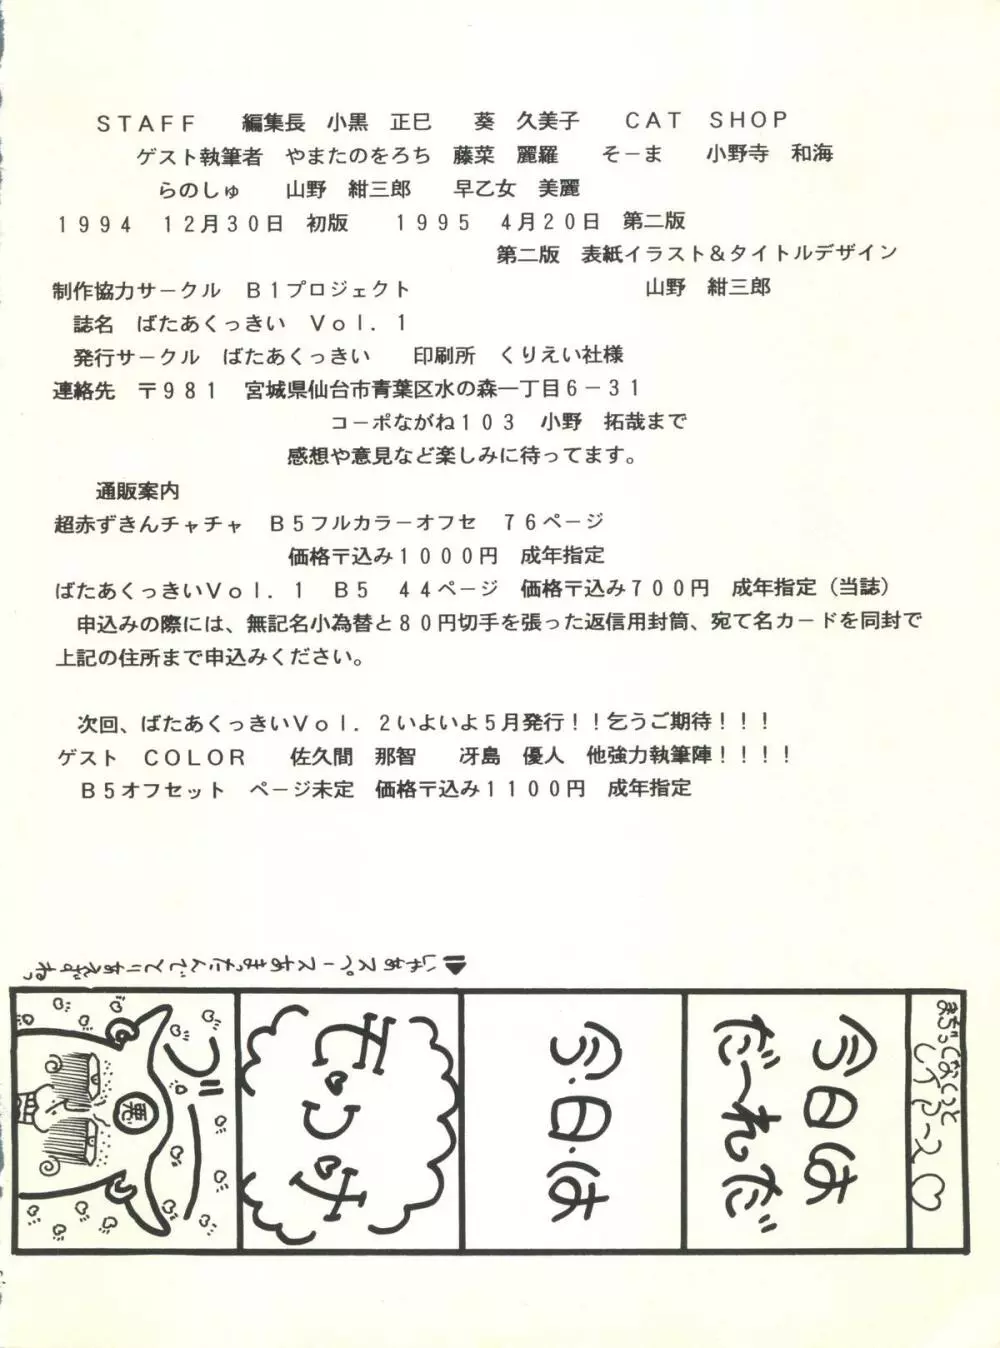 ＳＴＡＦＦ　編集長　小黒　正巳　葵　久美子　ＣＡＴ　ＳＨＯＰ
ゲスト執筆者　やまたのをろち　藤菜　麗羅　そーま　小野寺　和海
らのしゅ　山野　紺三郎　早乙女　美麗
１９９４　１２月３０日　初版　１９９５　４月２０日　第二版
第二版　表紙イラスト＆タイトルデザイン
制作協力サークル　Ｂ１プロジェクト　山野　紺三郎
誌名　ばたあくっきい　Ｖｏｌ．１
発行サークル　ばたあくっきい　印刷所　くりえい社様
連絡先　〒９８１　宮城県仙台市青葉区水の森一丁目６－３１
コーポながね１０３　小野　拓哉まで
感想や意見など楽しみに待ってます。
通販案内
超赤ずきんチャチャ　Ｂ５フルカラーオフセ　７６ページ
価格〒込み１０００円　成年指定
ばたあくっきいＶｏｌ．１　Ｂ５　４４ページ　価格〒込み７００円　成年指定（当誌）
申込みの際には、無記名小為替と８０円切手を張った返信用封筒、宛て名カードを同封で
上記の住所まで申込みください。
次回、ばたあくっきいＶｏｌ．２いよいよ５月発行！！乞うご期待！！！
ゲスト　ＣＯＬＯＲ　佐久間　那智　冴島　優人　他強力執筆陣！！！！
Ｂ５オフセット　ページ未定　価格〒込み１１００円　成年指定
じゃあスペースあまったんでとりあえずねっ
まちがってなくっと
今日は
だ〜れだ
今・日・は
モ・コ・ナ
ブー
悪